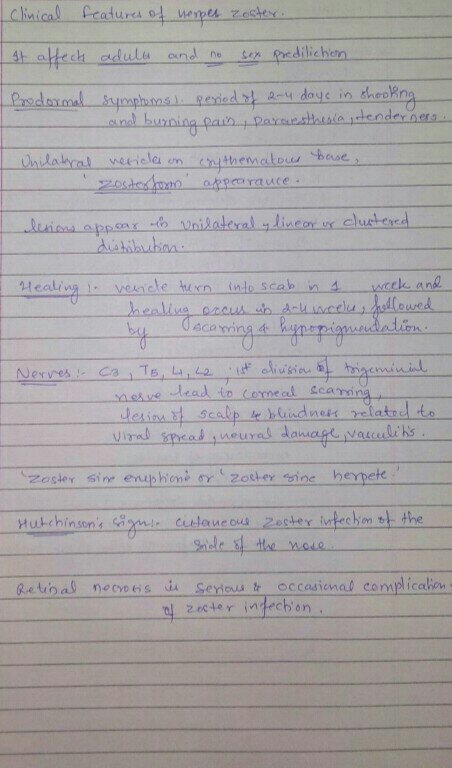 Clinical features of herpes zoster.
It affects adults and no sex prediliction
Prodormal symptoms:. period of 2-4 days in shooting
and burning pain, paraesthesia, tenderness.
Unilateral vesicles on erythematous base,
'zosterform' appearance.
lesions appear in unilateral, linear or clustered
distribution.
Healing :- vesicle turn into scab in 1 week and
healing occur in 2-4 weeks, followed
by scarring & hypopigmentation.
Nerves :- C3, T5, L1, L2, 1st division of trigeminial
nerve lead to corneal scarring,
lesion of scalp & blindness related to
viral spread, neural damage, vasculitis.
'zoster sine eruphone or 'zoster sine herpete.'
Hutchinson's sign:- cutaneous zoster infection of the
side of the nose.
Retinal necrosis is serious & occasional complication
of zoster infection.